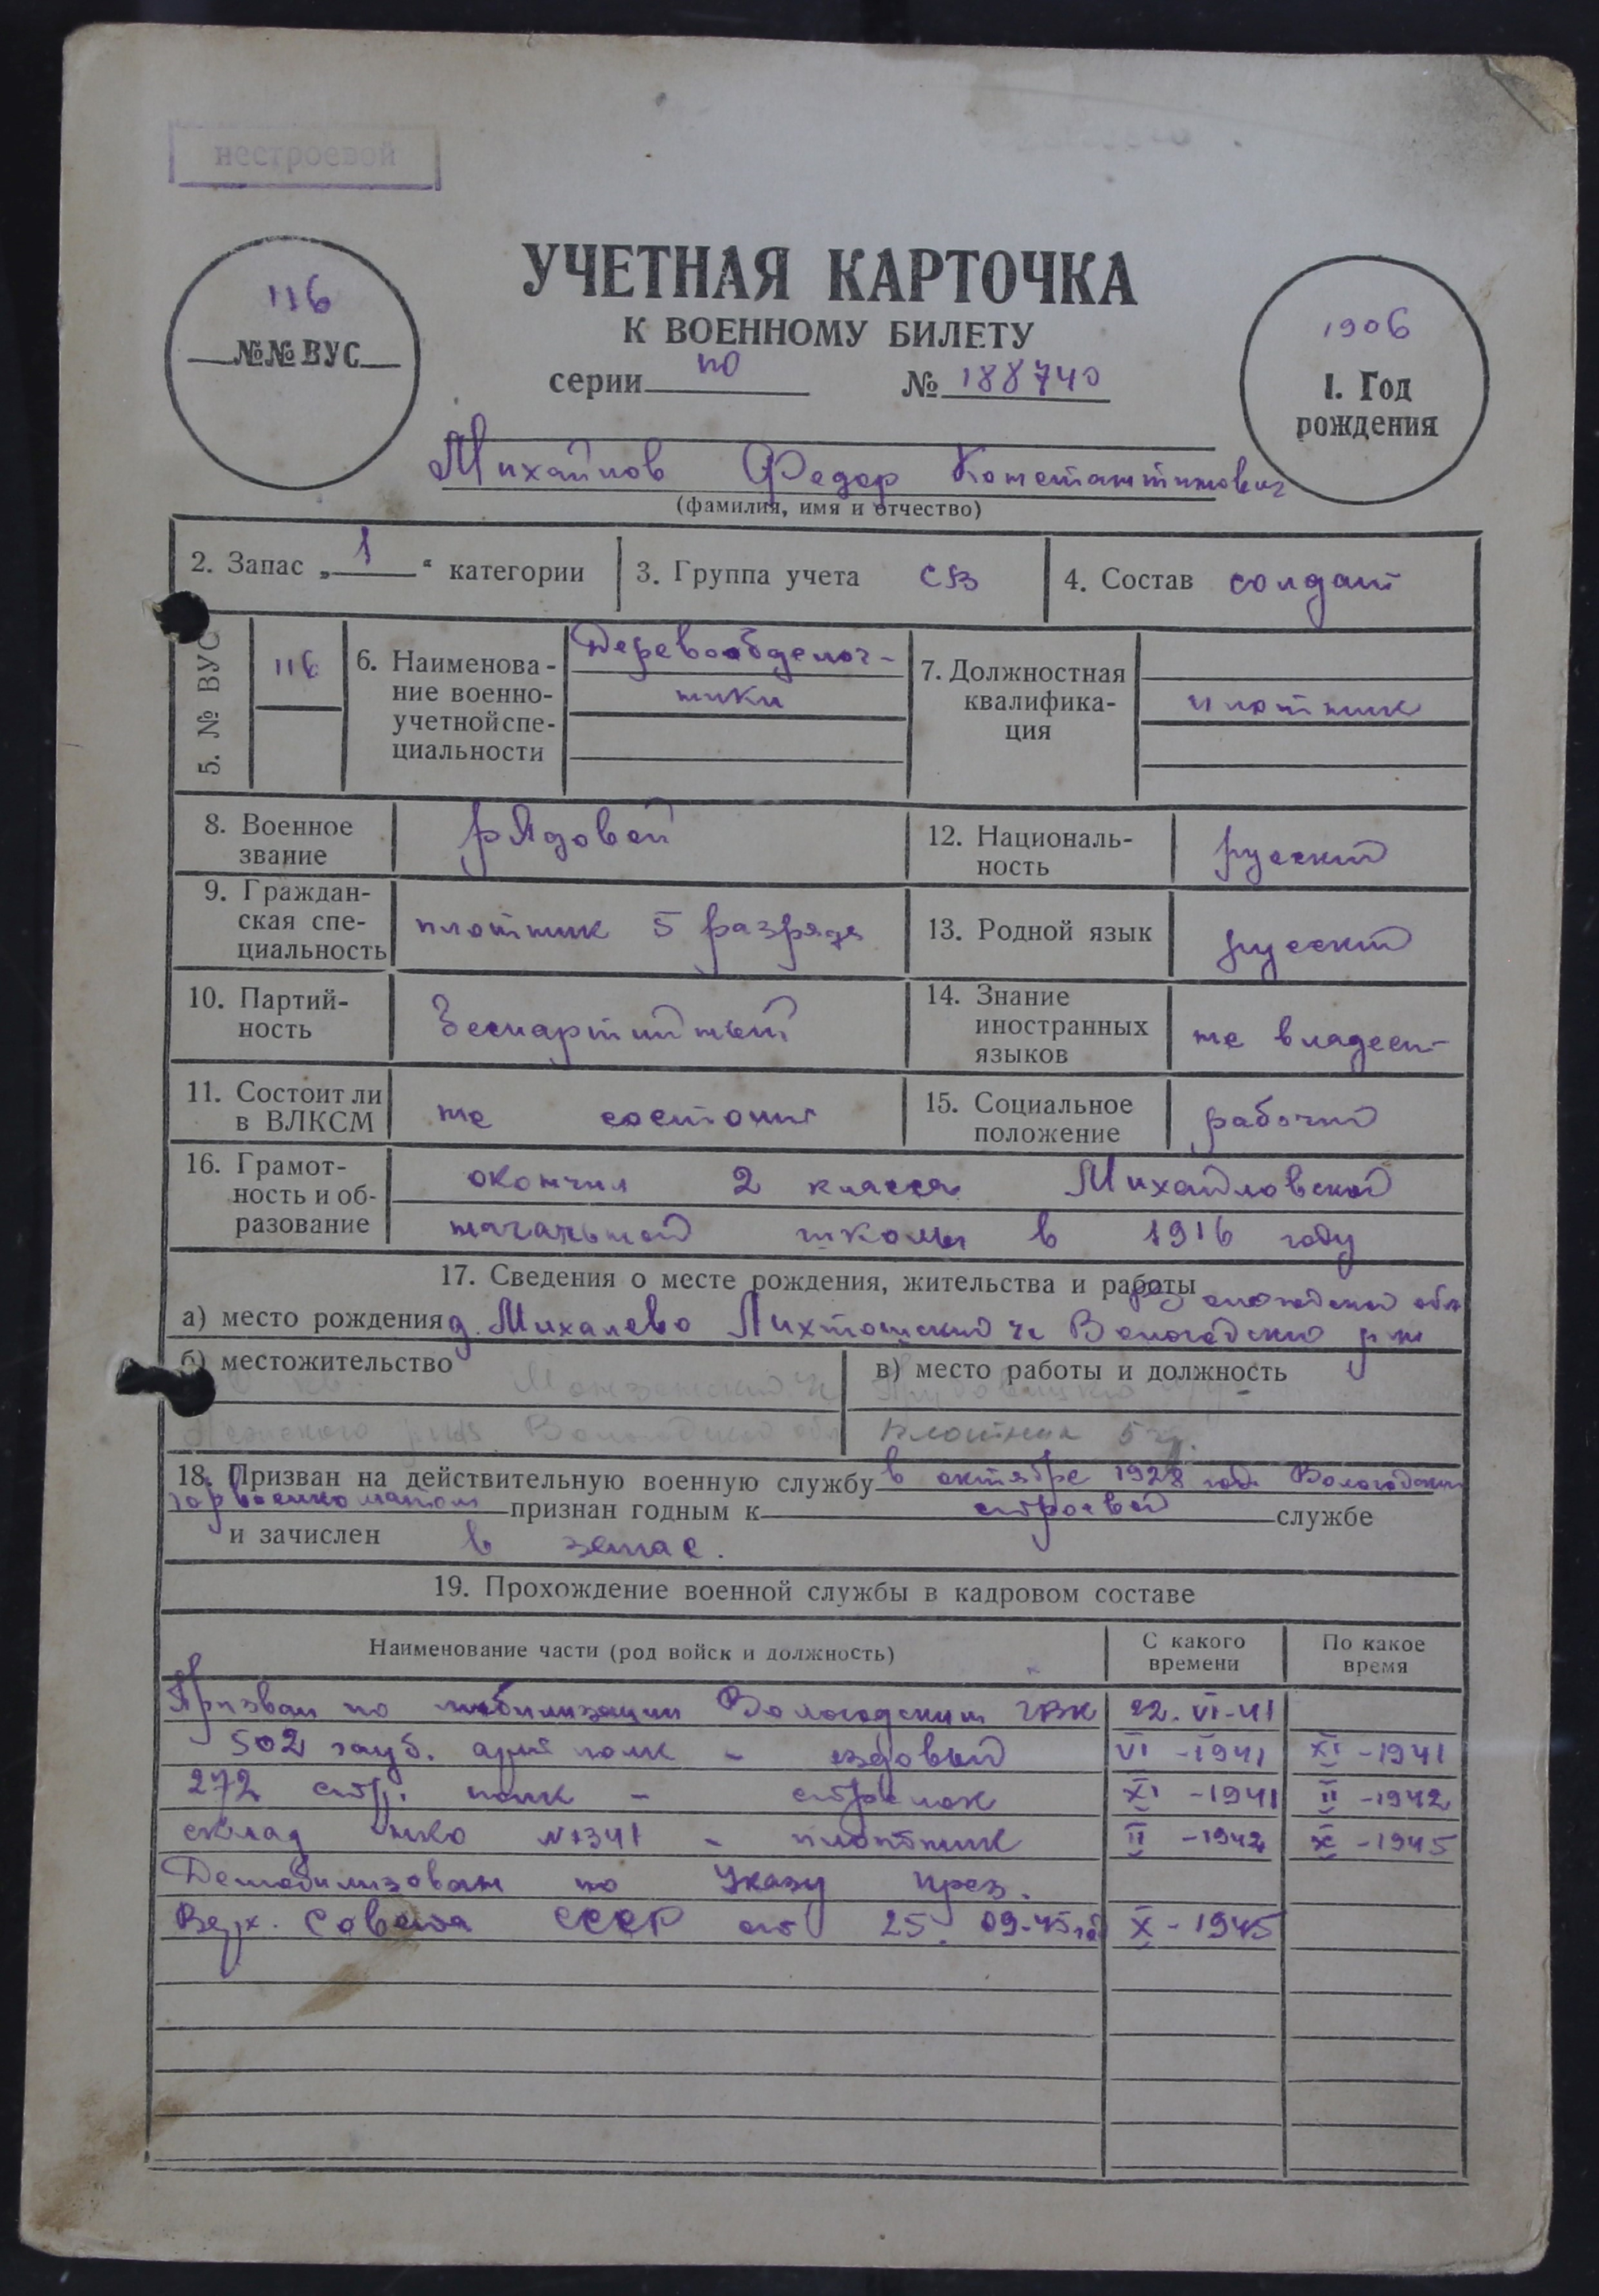 нестроевой
116
№№ ВУС
УЧЕТНАЯ КАРТОЧКА
К ВОЕННОМУ БИЛЕТУ
серии по № 188740
1906
1. Год
рождения
Михайлов Федор Константинович
(фамилия, имя и отчество)
2. Запас „ 1 “ категории
3. Группа учета СВ
4. Состав солдат
5. № ВУС
116
6. Наименова-
ние военно-
учетной спе-
циальности
Деревообделоч-
ники
7. Должностная
квалифика-
ция
плотник
8. Военное
звание
рядовой
12. Националь-
ность
русский
9. Граждан-
ская спе-
циальность
плотник 5 разряда
13. Родной язык
русский
10. Партий-
ность
беспартийный
14. Знание
иностранных
языков
не владеет
11. Состоит ли
в ВЛКСМ
не состоит
15. Социальное
положение
рабочий
16. Грамот-
ность и об-
разование
окончил 2 класса Михайловской
начальной школы в 1916 году
17. Сведения о месте рождения, жительства и работы
Вологодской обл
а) место рождения д. Михалево Лихтошский с Вологодский р-н
б) местожительство
Вологодской обл
в) место работы и должность
плотник 5 р.
18. Призван на действительную военную службу в октябре 1928 года Вологодским
горвоенкоматом признан годным к строевой службе
и зачислен в запас.
19. Прохождение военной службы в кадровом составе
Наименование части (род войск и должность)
С какого
времени
По какое
время
Призван по мобилизации Вологодским ГВК 22.VI-41
502 гауб. арт полк - ездовый VI -1941 XI -1941
272 стр. полк - стрелок XI -1941 II -1942
склад нко №1341 - плотник II -1942 X -1945
Демобилизован по Указу през.
Верх. Совета СССР от 25.09-45 год X - 1945